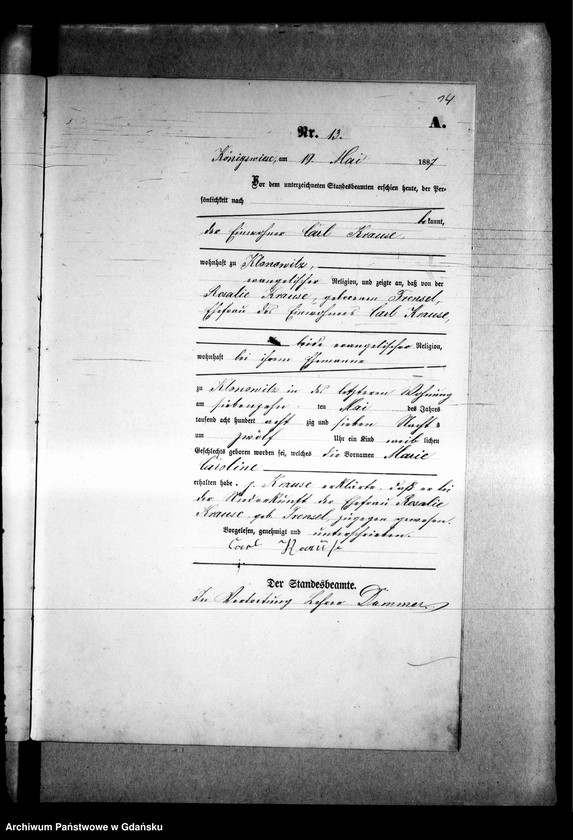 14
A.
Nr. 13.
Königswiese, am Mai 1887
Vor dem unterzeichneten Standesbeamten erschien heute, der Per-
sönlichkeit nach
bekannt,
der Einwohner Carl Krause,
wohnhaft zu Klonowitz,
evangelischer Religion, und zeigte an, daß von der
Rosalie Krause, geborenen Frensel,
Ehefrau des Einwohners Carl Krause,
beide evangelischer Religion,
wohnhaft bei ihrem Ehemanne
zu Klonowitz in der letzteren Wohnung
am siebenzehn ten Mai des Jahrs
tausend acht hundert acht zig und sieben Nachts
um zwölf Uhr ein Kind weib lichen
Geschlechts geboren worden sei, welches die Vornamen Marie
Caroline
erhalten habe. p. Krause erklärte, daß er bei
der Niederkunft der Ehefrau Rosalie
Krause geb. Frensel, zugegen gewesen.
Vorgelesen, genehmigt und unterschrieben.
Carl Krause
Der Standesbeamte.
In Vertretung Lehrer Dammer
Archiwum Państwowe w Gdańsku